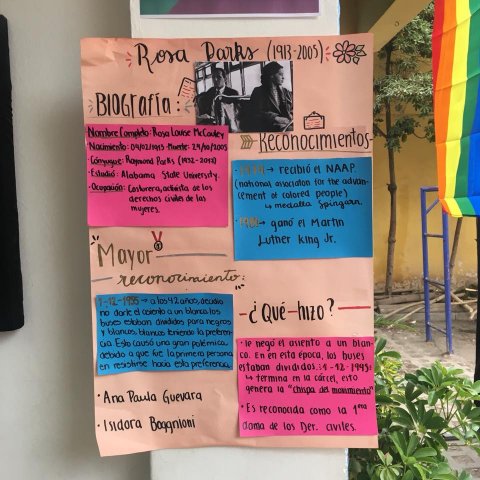 Rosa Parks (1913-2005)
BIOGRAFÍA:
Nombre Completo: Rosa Louise McCauley
· Nacimiento: 04/02/1913 · Muerte: 24/10/2005
· Cónyugue: Raymond Parks (1932-
· Estudió: Alabama State University.
· Ocupación: Costurera, activista de los
derechos civiles de las
mujeres.
Reconocimientos
→ recibió el NAAP.
(national association for the advan-
cement of colored people)
↳ medalla Spingarn.
→ ganó el Martin
Luther King Jr.
Mayor
reconocimiento:
1-12-1955 → a los 42 años, decidió
no darle el asiento a un blanco. los
buses estaban divididos para negros
y blancos, blancos teniendo la preferen-
cia. Esto causó una gran polémica
debido a que fue la primera persona
en resistirse hacia esta preferencia.
¿Qué hizo?
· le negó el asiento a un blan-
co. En en esta época, los buses
estaban divididos. :1-12-1995:
↳ termina en la cárcel, esto
genera la "chispa del movimiento"
· Es reconocida como la 1era
dama de los Der. civiles.
· Ana Paula Guevara
· Isidora Bacgnioni